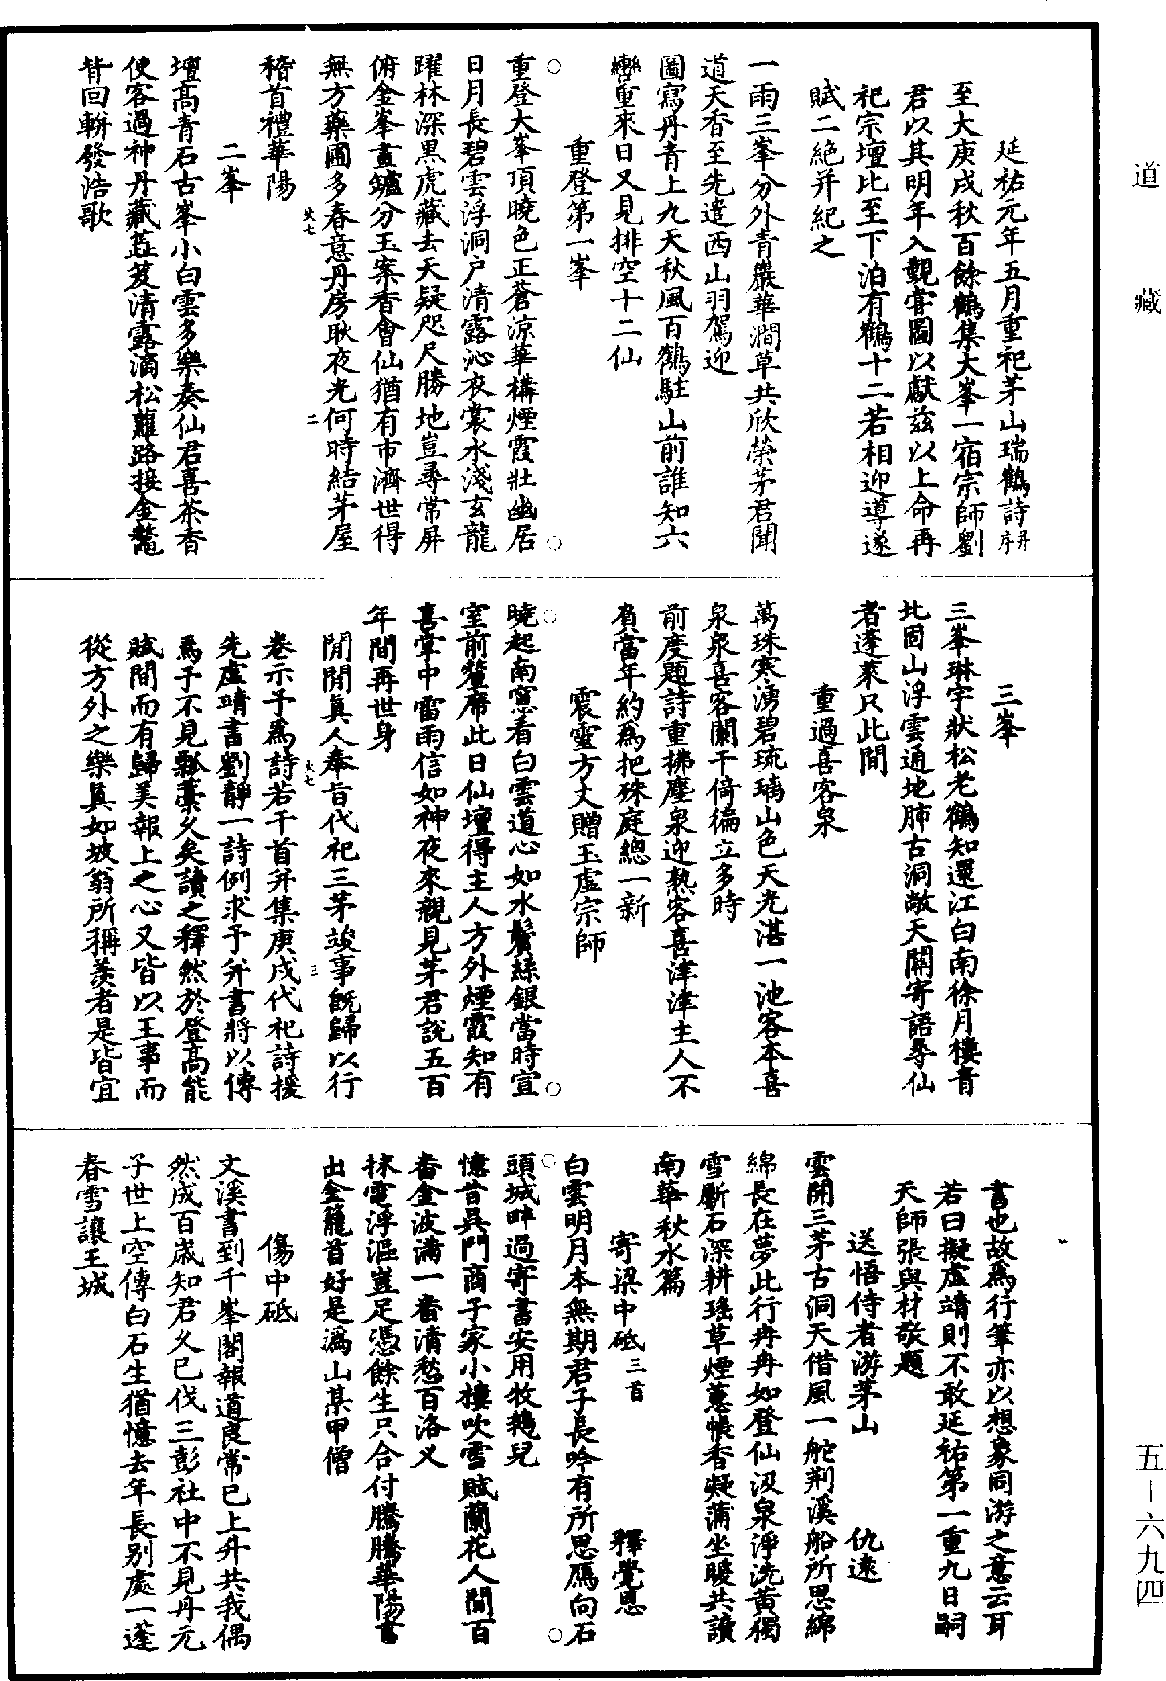 道藏
延祐元年五月重祀茅山瑞鶴詩并序
至大庚戌秋百餘鶴集大峯一宿宗師劉
君以其明年入覲嘗圖以獻茲以上命再
祀宗壇比至下泊有鶴十二若相迎導遂
賦二絕并紀之
一雨三峯分外青巖華澗草共欣榮茅君聞
道天香至先遣西山羽駕迎
圖寫丹青上九天秋風百鶴駐山前誰知六
轡重來日又見排空十二仙
重登第一峯
重登大峯頂曉色正蒼涼華構煙霞壯幽居
日月長碧雲浮洞戶清露沁衣裳水淺玄龍
躍林深黑虎藏去天疑咫尺勝地豈尋常屏
俯金峯畫鑪分玉案香會仙猶有市濟世得
無方藥圃多春意丹房耿夜光何時結茅屋
稽首禮華陽
二峯
壇高青石古峯小白雲多樂奏仙君喜茶香
使客過神丹藏蓋笈清露滴松蘿路接金鼇
背回軿發浩歌
三峯
三峯琳宇狀松老鶴知還江白南徐月樓青
北固山浮雲通地肺古洞敞天關寄語尋仙
者蓬萊只此間
重過喜客泉
萬珠寒湧碧琉璃山色天光湛一池客本喜
泉泉喜客闌干倚徧立多時
前度題詩重拂塵泉迎熟客喜津津主人不
負當年約為把殊庭總一新
震靈方丈贈玉虛宗師
曉起南窻看白雲道心如水鬢絲銀當時宣
室前釐席此日仙壇得主人方外煙霞知有
喜掌中雷雨信如神夜來親見茅君說五百
年間再世身
閒閒真人奉旨代祀三茅竣事旣歸以行
卷示予為詩若干首并集庚戌代祀詩援
先虛靖書劉靜一詩例求予并書將以傳
焉予不見瓢藁久矣讀之釋然於登高能
賦間而有歸美報上之心又皆以王事而
從方外之樂真如坡翁所稱羨者是皆宜
書也故為行筆亦以想象同游之意云耳
若曰擬虛靖則不敢延祐第一重九日嗣
天師張與材敬題
送悟侍者游茅山　仇遠
雲開三茅古洞天借風一舵荆溪船所思綿
綿長在夢此行冉冉如登仙汲泉淨洗黃獨
雪斸石深耕瑤草煙蕙帳香凝蒲坐暖共讀
南華秋水篇
寄梁中砥三首　釋覺恩
白雲明月本無期君子長吟有所思鴈向石
頭城畔過寄書安用牧鵝兒
憶昔吳門商子家小樓吹雪賦蘭花人間百
沓金波滿一番清愁百洛叉
抹電浮漚豈足憑餘生只合付騰騰華陽書
出金籠首好是溈山某甲僧
傷中砥
文溪書到千峯閣報道良常已上升共我偶
然成百歲知君久已伐三彭社中不見丹元
子世上空傳白石生猶憶去年長別處一蓬
春雪讓王城
五一六九四